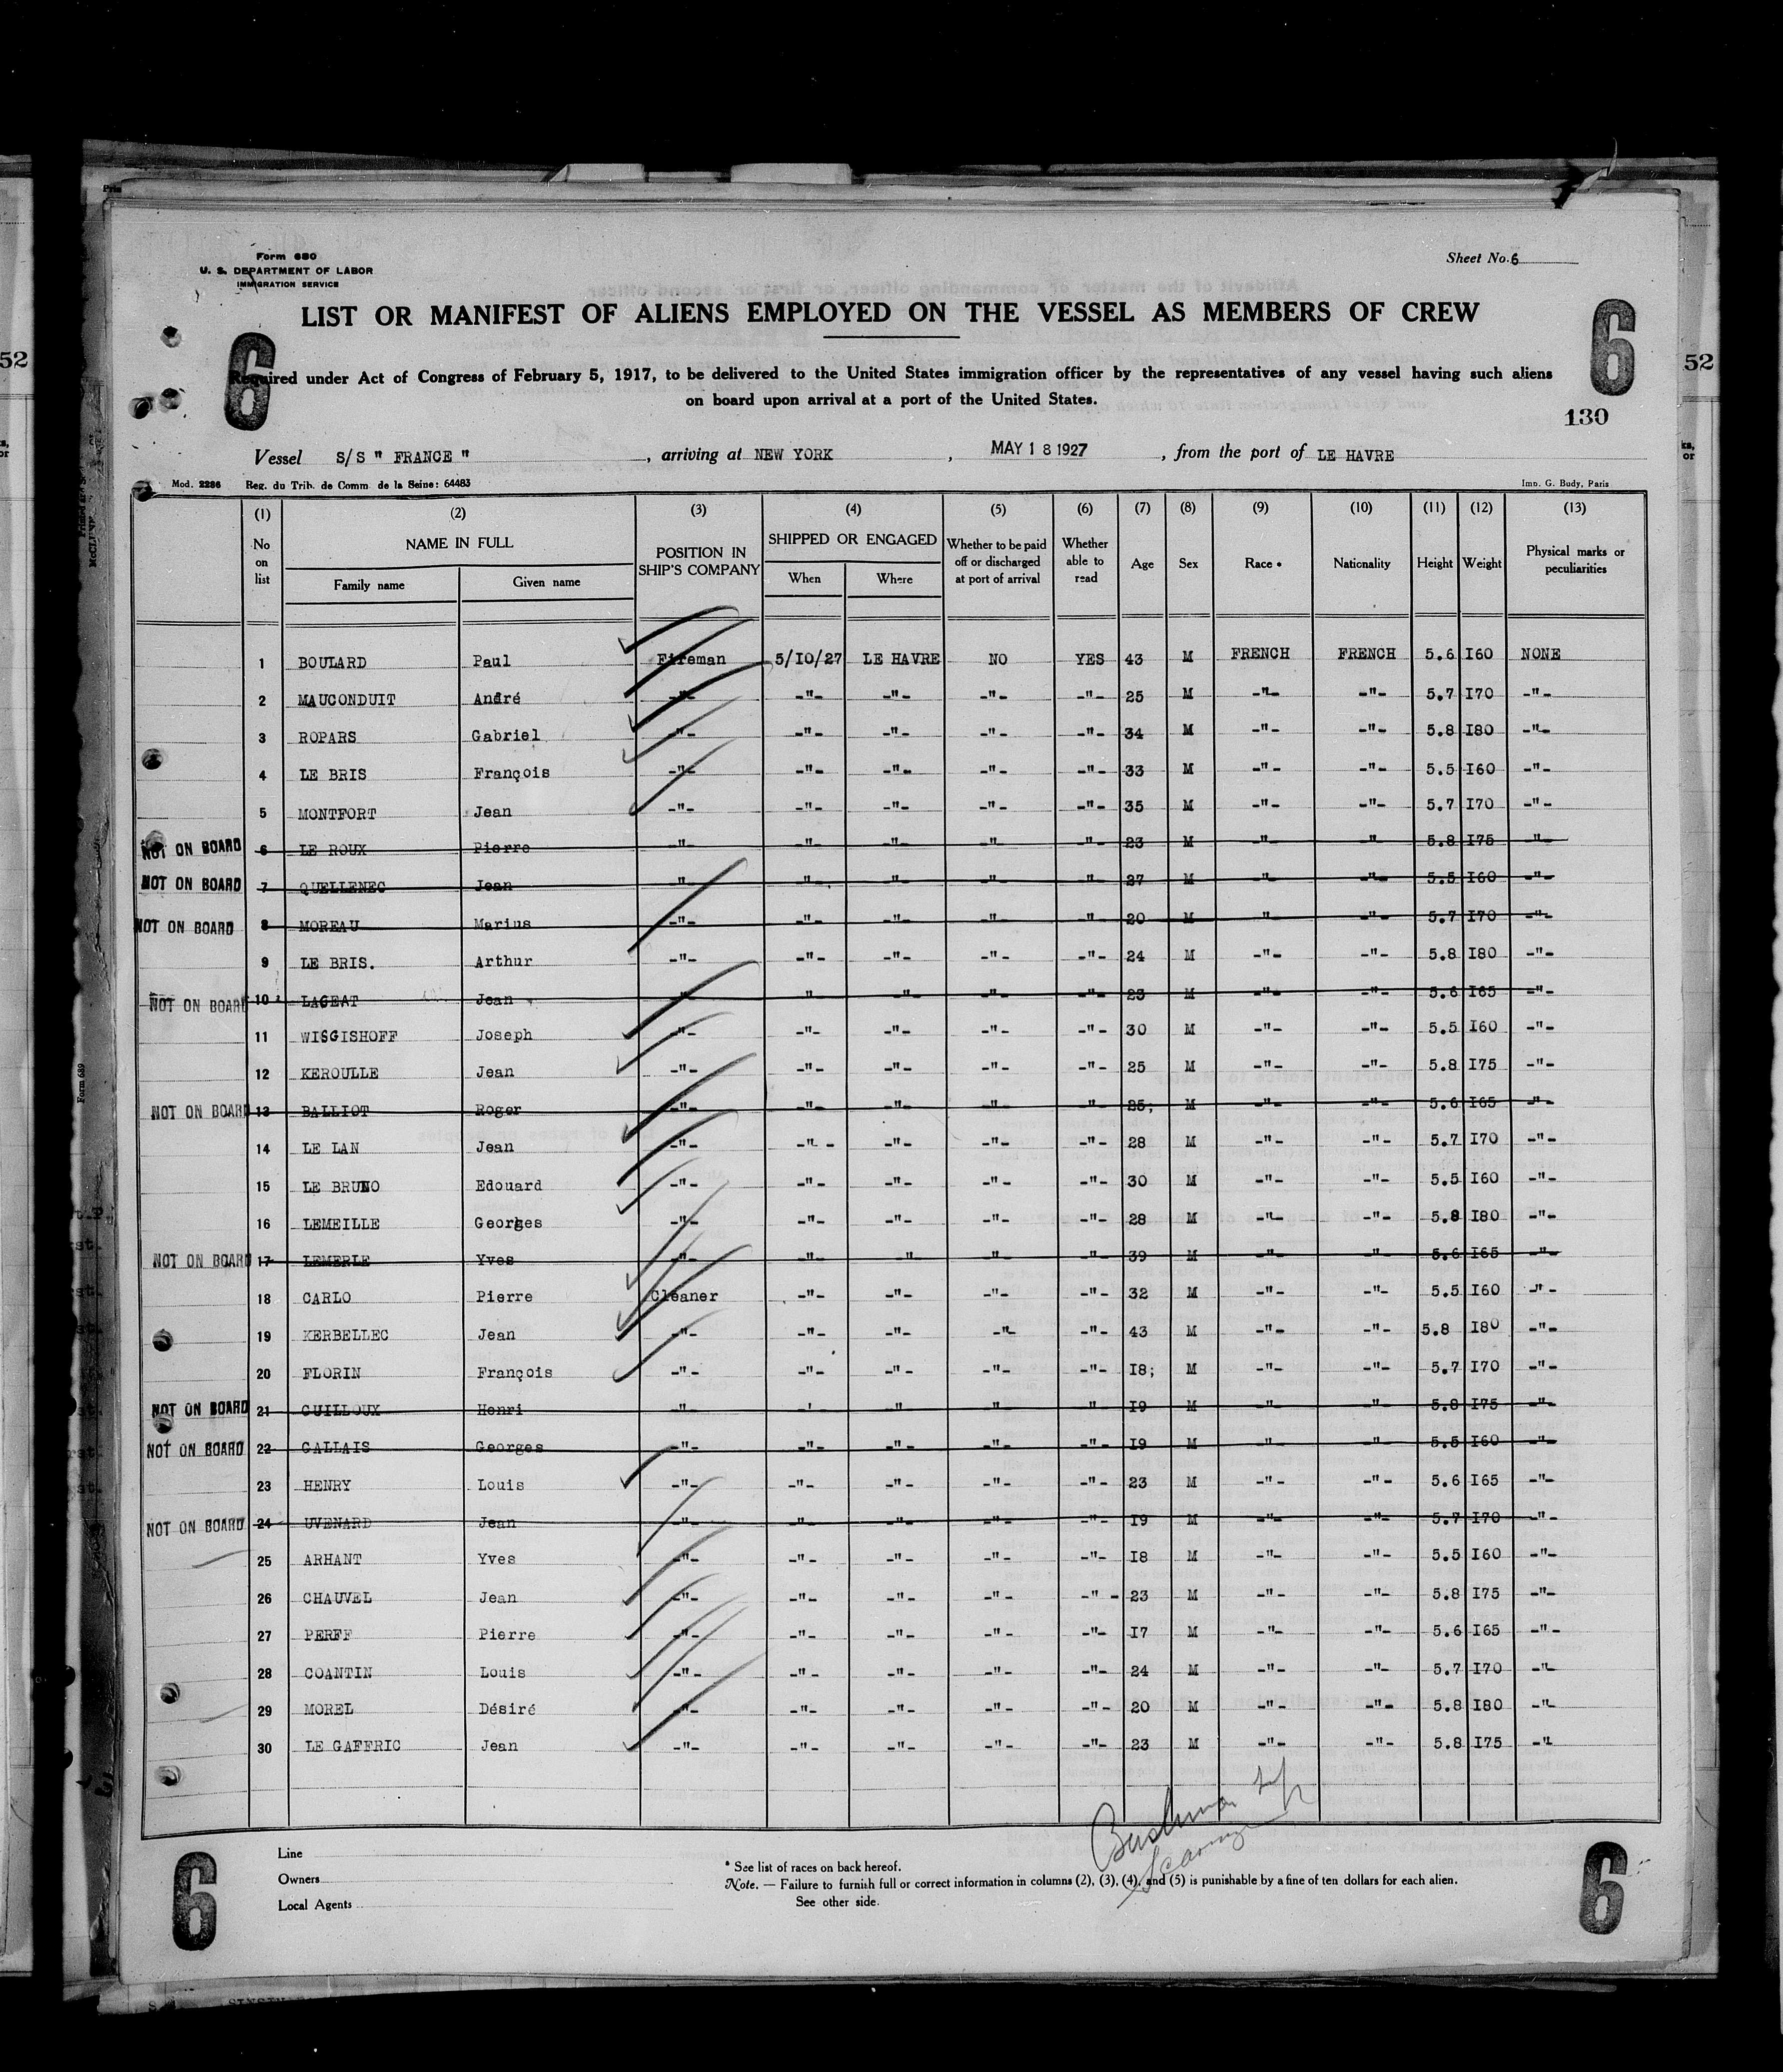 Form 680
U. S. DEPARTMENT OF LABOR
IMMIGRATION SERVICE
Sheet No. 6
LIST OR MANIFEST OF ALIENS EMPLOYED ON THE VESSEL AS MEMBERS OF CREW
6 6
Required under Act of Congress of February 5, 1917, to be delivered to the United States immigration officer by the representatives of any vessel having such aliens
on board upon arrival at a port of the United States.
52 52
130
Vessel S/S " FRANCE " , arriving at NEW YORK , MAY 18 1927 , from the port of LE HAVRE
Mod. 2286 Reg. du Trib. de Comm. de la Seine: 64483 Imp. G. Budy, Paris
(1) No on list (2) NAME IN FULL Family name Given name (3) POSITION IN SHIP'S COMPANY (4) SHIPPED OR ENGAGED When Where (5) Whether to be paid off or discharged at port of arrival (6) Whether able to read (7) Age (8) Sex (9) Race * (10) Nationality (11) Height (12) Weight (13) Physical marks or peculiarities
1 BOULARD Paul Fireman 5/10/27 LE HAVRE NO YES 43 M FRENCH FRENCH 5.6 I60 NONE
2 MAUCONDUIT André -"- -"- -"- -"- -"- 25 M -"- -"- 5.7 I70 -"-
3 ROPARS Gabriel -"- -"- -"- -"- -"- 34 M -"- -"- 5.8 I80 -"-
4 LE BRIS François -"- -"- -"- -"- -"- 33 M -"- -"- 5.5 I60 -"-
5 MONTFORT Jean -"- -"- -"- -"- -"- 35 M -"- -"- 5.7 I70 -"-
NOT ON BOARD 6 LE ROUX Pierre -"- -"- -"- -"- -"- 23 M -"- -"- 5.8 I75 -"-
NOT ON BOARD 7 QUELLENEC Jean -"- -"- -"- -"- -"- 27 M -"- -"- 5.5 I60 -"-
NOT ON BOARD 8 MOREAU Marius -"- -"- -"- -"- -"- 20 M -"- -"- 5.7 I70 -"-
9 LE BRIS. Arthur -"- -"- -"- -"- -"- 24 M -"- -"- 5.8 I80 -"-
NOT ON BOARD 10 LAGEAT Jean -"- -"- -"- -"- -"- 23 M -"- -"- 5.6 I65 -"-
11 WISGISHOFF Joseph -"- -"- -"- -"- -"- 30 M -"- -"- 5.5 I60 -"-
12 KEROULLE Jean -"- -"- -"- -"- -"- 25 M -"- -"- 5.8 I75 -"-
NOT ON BOARD 13 BALLIOT Roger -"- -"- -"- -"- -"- 25; M -"- -"- 5.6 I65 -"-
14 LE LAN Jean -"- -"- -"- -"- -"- 28 M -"- -"- 5.7 I70 -"-
15 LE BRUNO Edouard -"- -"- -"- -"- -"- 30 M -"- -"- 5.5 I60 -"-
16 LEMEILLE Georges -"- -"- -"- -"- -"- 28 M -"- -"- 5.8 I80 -"-
NOT ON BOARD 17 LEMERLE Yves -"- -"- -"- -"- -"- 39 M -"- -"- 5.6 I65 -"-
18 CARLO Pierre Cleaner -"- -"- -"- -"- 32 M -"- -"- 5.5 I60 -"-
19 KERBELLEC Jean -"- -"- -"- -"- -"- 43 M -"- -"- 5.8 I80 -"-
20 FLORIN François -"- -"- -"- -"- -"- I8; M -"- -"- 5.7 I70 -"-
NOT ON BOARD 21 GUILLOUX Henri -"- -"- -"- -"- -"- I9 M -"- -"- 5.8 I75 -"-
NOT ON BOARD 22 CALLAIS Georges -"- -"- -"- -"- -"- I9 M -"- -"- 5.5 I60 -"-
23 HENRY Louis -"- -"- -"- -"- -"- 23 M -"- -"- 5.6 I65 -"-
NOT ON BOARD 24 UVENARD Jean -"- -"- -"- -"- -"- I9 M -"- -"- 5.7 I70 -"-
25 ARHANT Yves -"- -"- -"- -"- -"- I8 M -"- -"- 5.5 I60 -"-
26 CHAUVEL Jean -"- -"- -"- -"- -"- 23 M -"- -"- 5.8 I75 -"-
27 PERFF Pierre -"- -"- -"- -"- -"- I7 M -"- -"- 5.6 I65 -"-
28 COANTIN Louis -"- -"- -"- -"- -"- 24 M -"- -"- 5.7 I70 -"-
29 MOREL Désiré -"- -"- -"- -"- -"- 20 M -"- -"- 5.8 I80 -"-
30 LE GAFFRIC Jean -"- -"- -"- -"- -"- 23 M -"- -"- 5.8 I75 -"-
Line
Owners
Local Agents
* See list of races on back hereof.
Note. — Failure to furnish full or correct information in columns (2), (3), (4), and (5) is punishable by a fine of ten dollars for each alien.
See other side.
6 6
Form 689